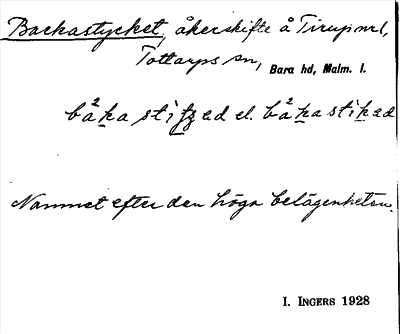 Backastycket, åkerskifte å Tirup nr 1,
Tottarps sn, Bara hd, Malm. l.
bå²ka sti tz ed el. bå²ka stikəd
Namnet efter den höga belägenheten.
I. INGERS 1928